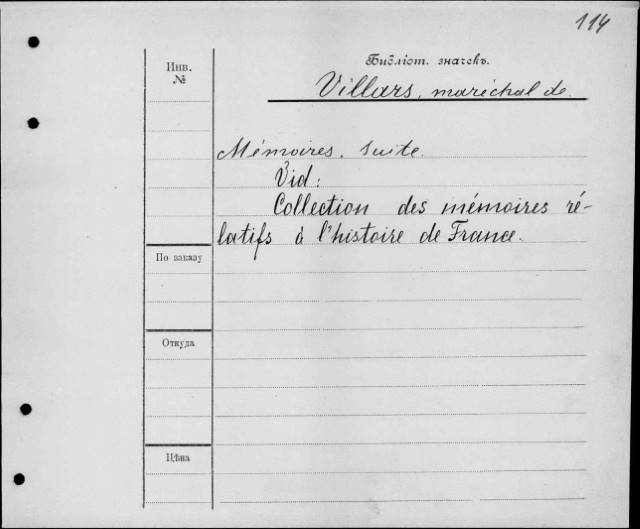 114
Инв.
№
Библіот. значекъ.
Villars, maréchal de.
Mémoires. Suite.
Vid:
Collection des mémoires ré-
latifs à l'histoire de France.
По заказу
Откуда
Цѣна